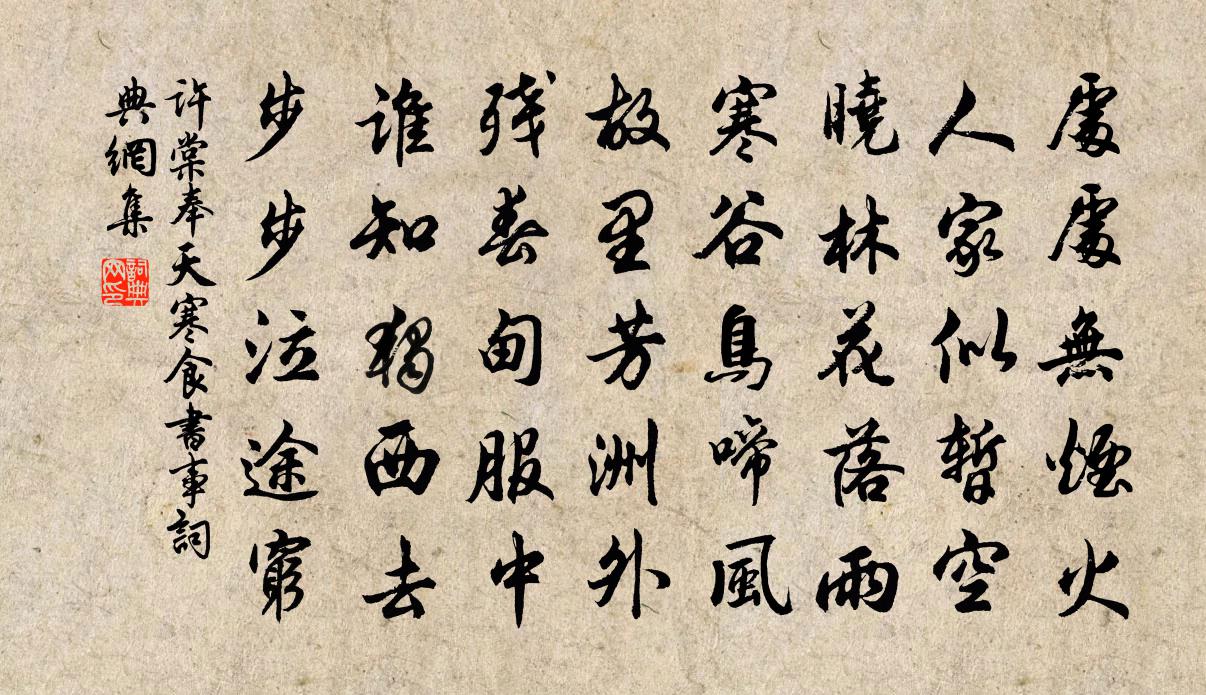 處處無煙火
人家似暫空
曉林花落雨
寒谷鳥啼風
故里芳洲外
残春甸服中
誰知獨西去
步步泣途窮
許棠奉天寒食書事詞
典網集
詞典
网印